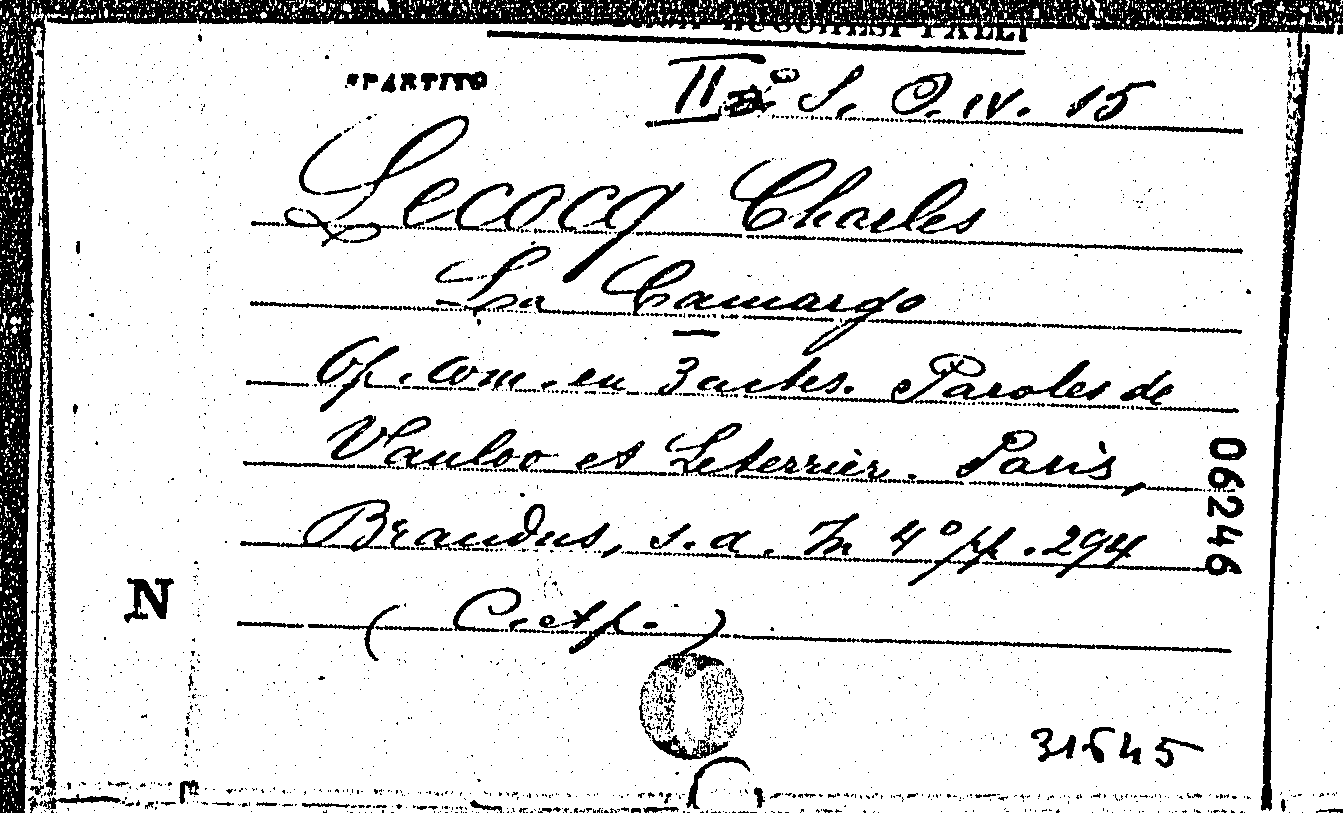 LUCCHESI PALLI
SPARTITO
II S. C. IV. 15
Lecocq Charles
La Camargo
Op. com. en 3 actes. Paroles de
Vanloo et Leterrier. Paris,
Brandus, s. d. In 4° pp. 294
(C. et p.)
06246
N
31645